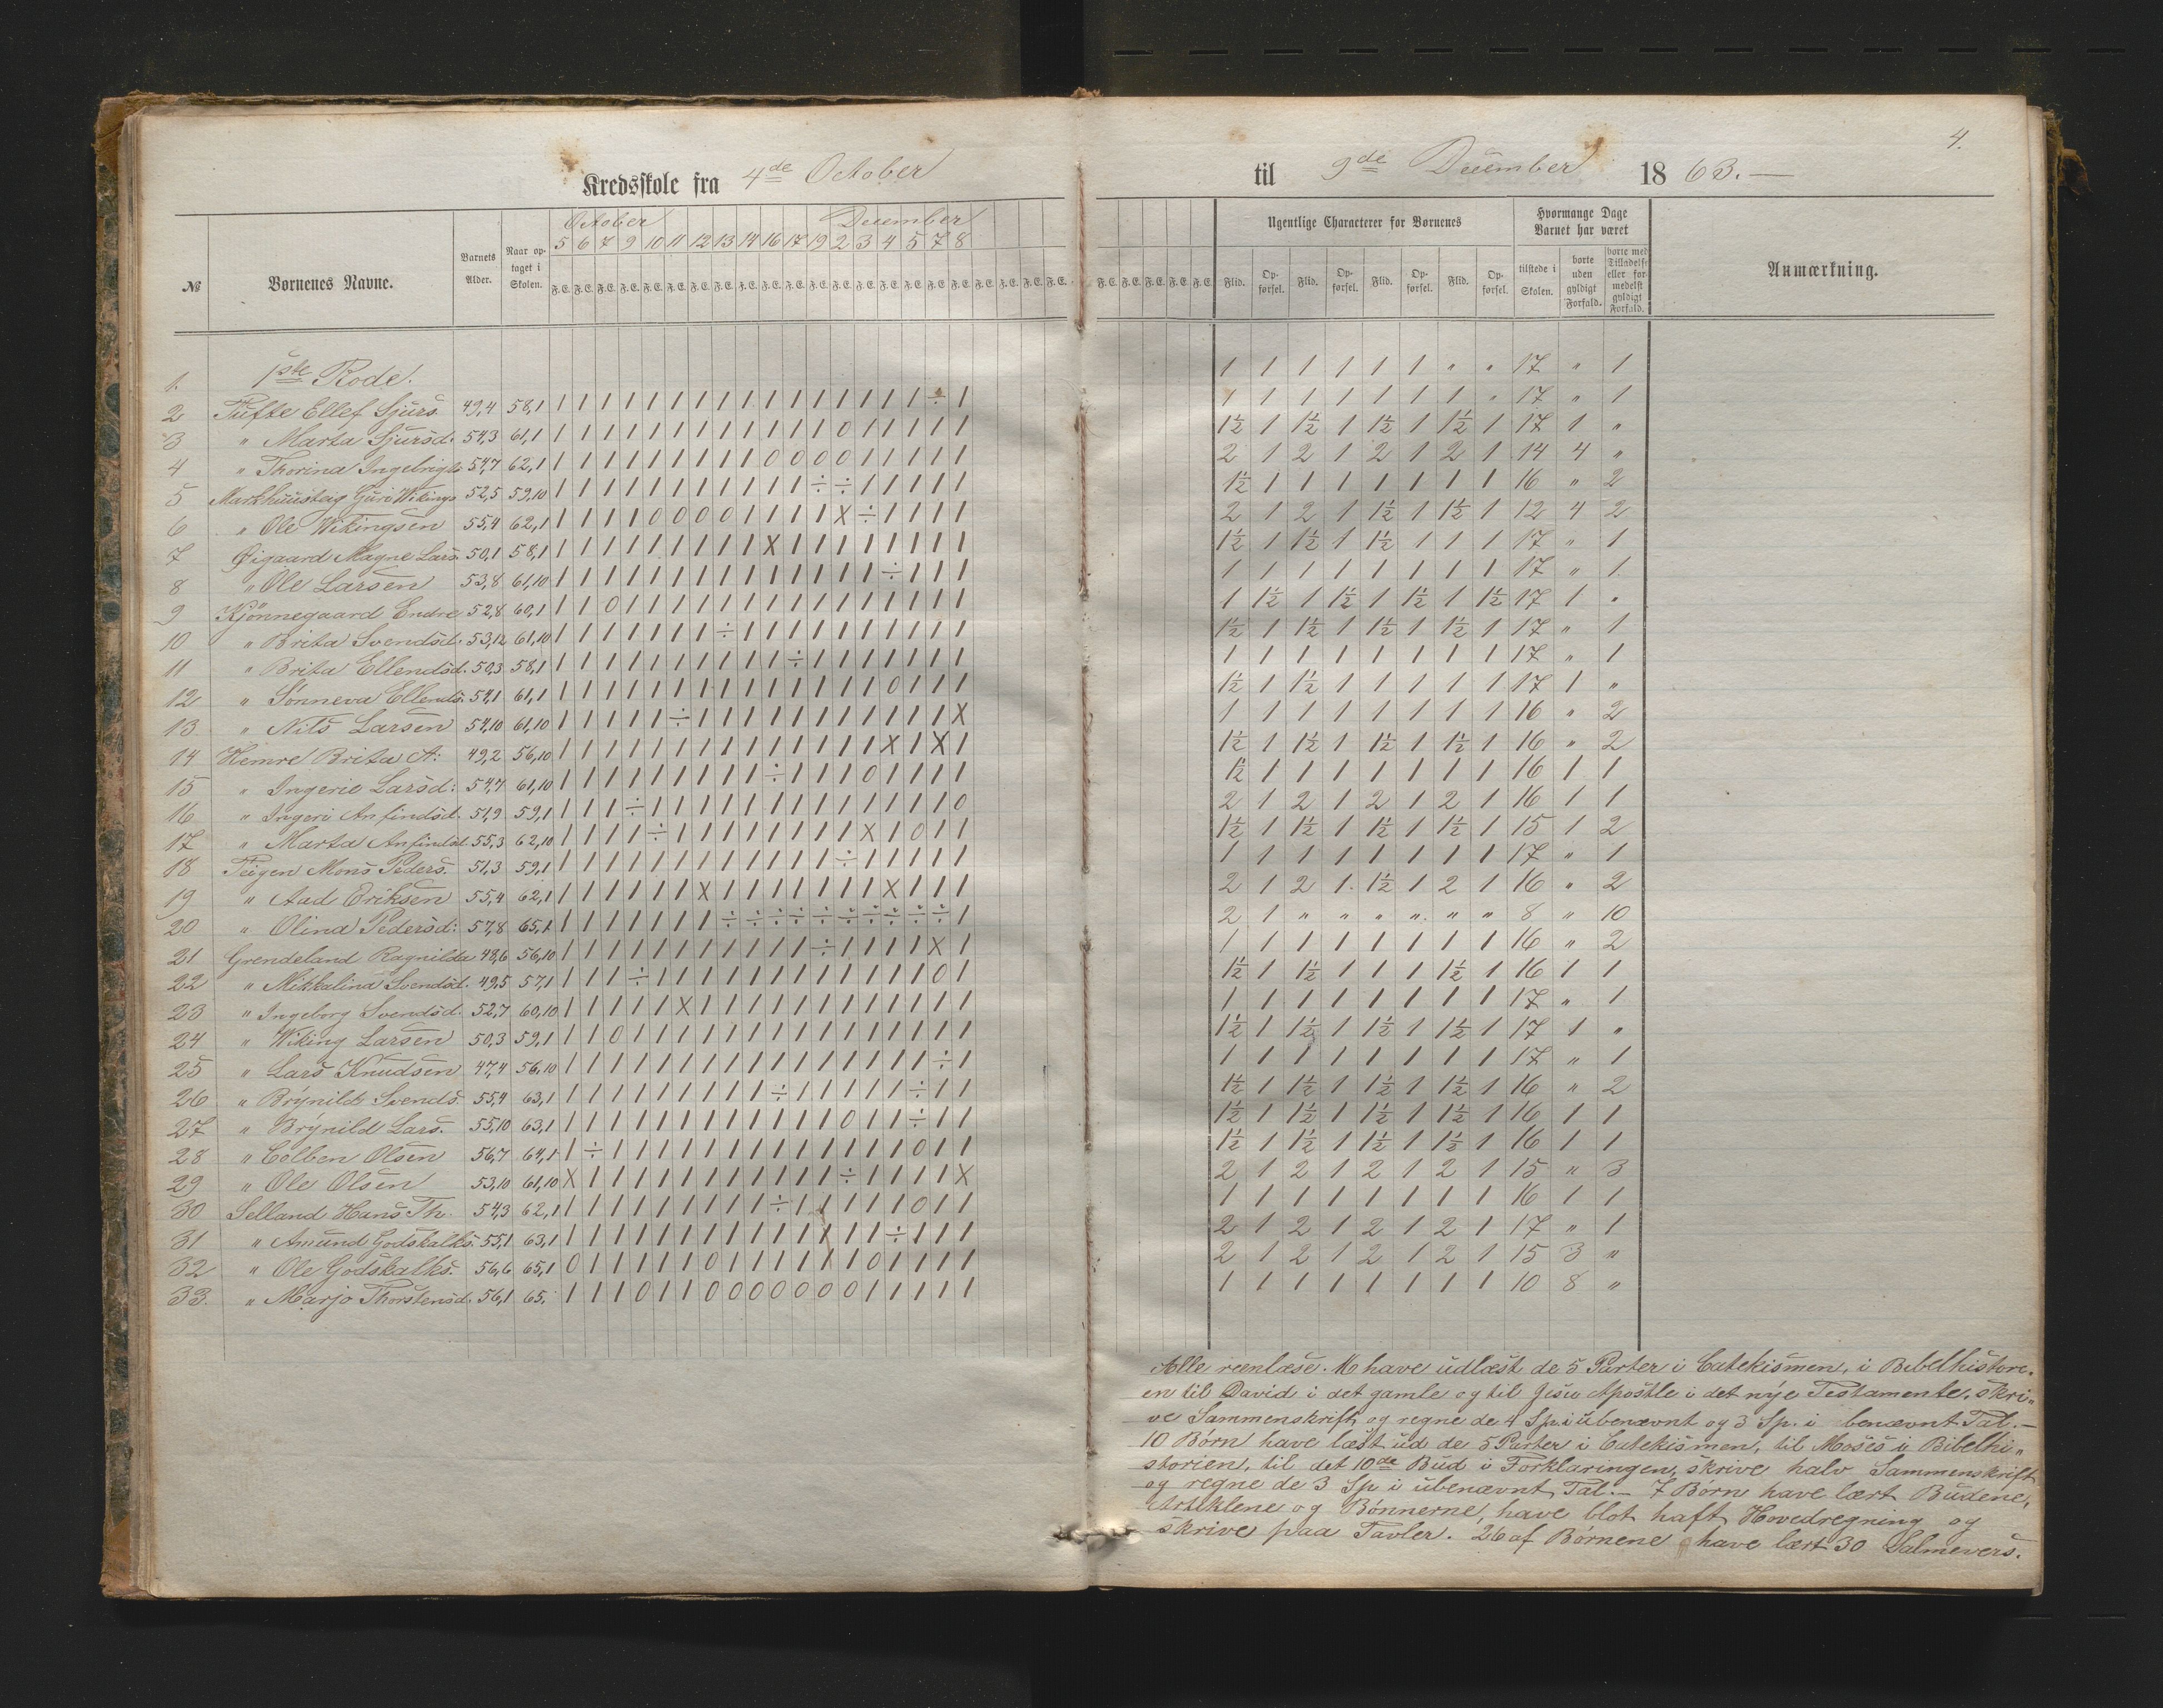 4.
Kredsskole fra 4de October til 9de December 1863.—
October December
5 6 7 9 10 11 12 13 14 16 17 19 2 3 4 5 7 8
№ Børnenes Navne. Barnets Alder. Naar optaget i Skolen. F.E. F.E. F.E. F.E. F.E. F.E. F.E. F.E. F.E. F.E. F.E. F.E. F.E. F.E. F.E. F.E. F.E. F.E. F.E. F.E. F.E. F.E. F.E. F.E. F.E. F.E. F.E.
Ugentlige Characterer for Børnenes
Flid. Opførsel. Flid. Opførsel. Flid. Opførsel. Flid. Opførsel.
Hvormange Dage Barnet har været
tilstede i Skolen. borte uden gyldigt Forfald. borte med Tilladelse eller formedelst gyldigt Forfald.
Anmærkning.
1. 1ste Rode. 1 1 1 1 1 1 " " 17 " 1
2 Tufte Ellef Sjurs. 49,4 58,1 1 1 1 1 1 1 1 1 1 1 1 1 1 1 1 1 ÷ 1 1 1 1 1 1 1 1 " 17 " 1
3 " Marta Sjursd. 54,3 61,1 1 1 1 1 1 1 1 1 1 1 1 1 0 1 1 1 1 1 1½ 1 1½ 1 1½ 1 1½ 1 17 1 "
4 " Thorina Ingebrigts 54,7 62,1 1 1 1 1 1 1 1 1 1 0 0 0 0 1 1 1 1 1 2 1 2 1 2 1 2 1 14 4 "
5 Markhuusteig Guri Wikings 52,5 59,10 1 1 1 1 1 1 1 1 1 1 1 ÷ ÷ 1 1 1 1 1 1½ 1 1 1 1 1 1 1 16 " 2
6 " Ole Wikingsen 55,4 62,1 1 1 1 1 0 0 0 0 1 1 1 1 X ÷ 1 1 1 1 2 1 2 1 1½ 1 1½ 1 12 4 2
7 Øigaard Magne Lars. 50,1 58,1 1 1 1 1 1 1 1 1 1 X 1 1 1 1 1 1 1 1 1½ 1 1½ 1 1½ 1 1 1 17 " 1
8 " Ole Larsen 53,8 61,10 1 1 1 1 1 1 1 1 1 1 1 1 1 1 ÷ 1 1 1 1 1 1 1 1 1 1 1 17 " 1.
9 Kjønnegaard Endre 52,8 60,1 1 1 0 1 1 1 1 1 1 1 1 1 1 1 1 1 1 1 1 1½ 1 1½ 1 1½ 1 1½ 17 1 "
10 " Brita Svendsd. 53,12 61,10 1 1 1 1 1 1 1 ÷ 1 1 1 1 1 1 1 1 1 1 1½ 1 1½ 1 1½ 1 1½ 1 17 " 1
11 " Brita Ellendsd. 50,3 58,1 1 1 1 1 1 1 1 1 1 1 ÷ 1 1 1 1 1 1 1 1 1 1 1 1 1 1 1 17 " 1
12 " Sønneva Ellends. 54,1 61,1 1 1 1 1 1 1 1 1 1 1 1 1 1 1 0 1 1 1 1½ 1 1½ 1 1 1 1 1 17 1 "
13. " Nils Larsen 54,10 61,10 1 1 1 1 1 ÷ 1 1 1 1 1 1 1 1 1 1 1 X 1 1 1 1 1 1 1 1 16 " 2
14 Hemre Brita A: 49,2 56,10 1 1 1 1 1 1 1 1 1 1 1 1 1 1 X 1 X 1 1½ 1 1½ 1 1½ 1 1½ 1 16 " 2
15 " Ingerie Larsd: 54,7 61,10 1 1 1 1 1 1 1 1 1 ÷ 1 1 1 0 1 1 1 1 1½ 1 1 1 1 1 1 1 16 1 1
16 " Ingeri Anfindsd. 51,9 59,1 1 1 1 ÷ 1 1 1 1 1 1 1 1 1 1 1 1 1 0 2 1 2 1 2 1 2 1 16 1 1
17 " Marta Anfindsd. 55,3 62,10 1 1 1 1 ÷ 1 1 1 1 1 1 1 1 X 1 0 1 1 1½ 1 1½ 1 1½ 1 1½ 1 15 1 2
18 Teigen Mons Peders. 51,3 59,1 1 1 1 1 1 1 1 1 1 1 1 1 ÷ 1 1 1 1 1 1 1 1 1 1 1 1 1 17 " 1
19 " Aad Eriksen 55,4 62,1 1 1 1 1 1 1 X 1 1 1 1 1 1 1 X 1 1 1 2 1 2 1. 1½ 1 2 1 16 " 2
20 " Olina Pedersd: 57,8 65,1 1 1 1 1 1 1 1 ÷ ÷ ÷ ÷ ÷ ÷ ÷ ÷ ÷ ÷ 1 2 1 " " " " " " 8 " 10
21 Grendeland Ragnilda 48,6 56,10 1 1 1 1 1 1 1 1 1 1 1 ÷ 1 1 1 1 X 1 1 1 1 1 1 1 1 1 16 " 2
22 " Mikkalina Svendsd. 49,5 57,1 1 1 1 ÷ 1 1 1 1 1 1 1 1 1 1 1 1 0 1 1½ 1 1½ 1 1 1 1½ 1 16 1 1
23 " Ingeborg Svendsd. 52,7 60,10 1 1 1 1 1 X 1 1 1 1 1 1 1 1 1 1 1 1 1 1 1 1 1 1 1 1 17 " 1
24 " Wiking Larsen 50,3 59,1 1 1 0 1 1 1 1 1 1 1 1 1 1 1 1 1 1 1 1½ 1 1½ 1 1½ 1 1½ 1 17 1 "
25 " Lars Knudsen 47,4 56,10 1 1 1 1 1 1 1 1 1 1 1 1 1 1 1 1 ÷ 1 1 1 1 1 1 1 1 1 17 " 1
26 " Brynild Svends. 55,4 63,1 1 1 1 1 1 1 1 1 1 ÷ 1 1 1 1 1 ÷ 1 1 1½ 1 1½ 1 1½ 1 1½ 1 16 " 2
27 " Brynild Lars. 55,10 63,1 1 1 1 1 1 1 1 1 1 1 1 1 0 1 1 ÷ 1 1 1½ 1 1½ 1 1½ 1 1½ 1 16 1 1
28 " Colben Olsen 56,7 64,1 1 ÷ 1 1 1 1 1 1 1 1 1 1 1 1 1 0 1 1 1½ 1 1½ 1 1½ 1 1½ 1 16 1 1
29 " Ole Olsen 53,10 61,10 X 1 1 1 1 1 1 1 1 1 1 1 ÷ 1 1 1 1 X 2 1 2 1 2 1 2 1 15 " 3
30 Selland Hans Th. 54,3 62,1 1 1 1 1 1 1 1 1 1 ÷ 1 1 1 1 1 0 1 1 1 1 1 1 1 1 1 1 16 1 1
31 " Amund Godskalks. 55,1 63,1 1 1 1 1 1 1 1 1 1 1 1 1 1 1 ÷ 1 1 1 2 1 2 1 2 1 2 1 17 " 1
32 " Ole Godskalks. 56,6 65,1 0 1 1 1 1 1 0 1 1 1 1 1 1 0 1 1 1 1 2 1 2 1 2 1 2 1 15 3 "
33. " Marjo Thorstensd. 56,1 65, 1 1 1 0 1 1 0 0 0 0 0 0 0 1 1 1 1 1 1 1 1 1 1 1 1 1 10 8 "
Alle reenlæse. 16 have udlæst de 5 Parter i Catekismen, i Bibelhistori-
en til David i det gamle og til Jesu Apostle i det nye Testamente, skri-
ve Sammenskrift og regne de 4 Sp. i ubenævnt og 3 Sp. i benævnt Tal.—
10 Børn have læst ud de 5 Parter i Catekismen, til Moses i Bibelhi-
storien, til det 10de Bud i Forklaringen, skrive halv Sammenskrift
og regne de 3 Sp i ubenævnt Tal.— 7 Børn have lært Budene,
Artiklene og Bønnerne, have blot haft Hovedregning og
skrive paa Tavler. 26 af Børnene have lært 30 Salmevers.